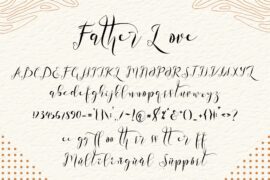 Father Love
ABCDEFGHIJKLMNOPQRSTUVWXYZ
abcdefghijklmnopqrstuvwxyz
1234567890
Multilingual Support